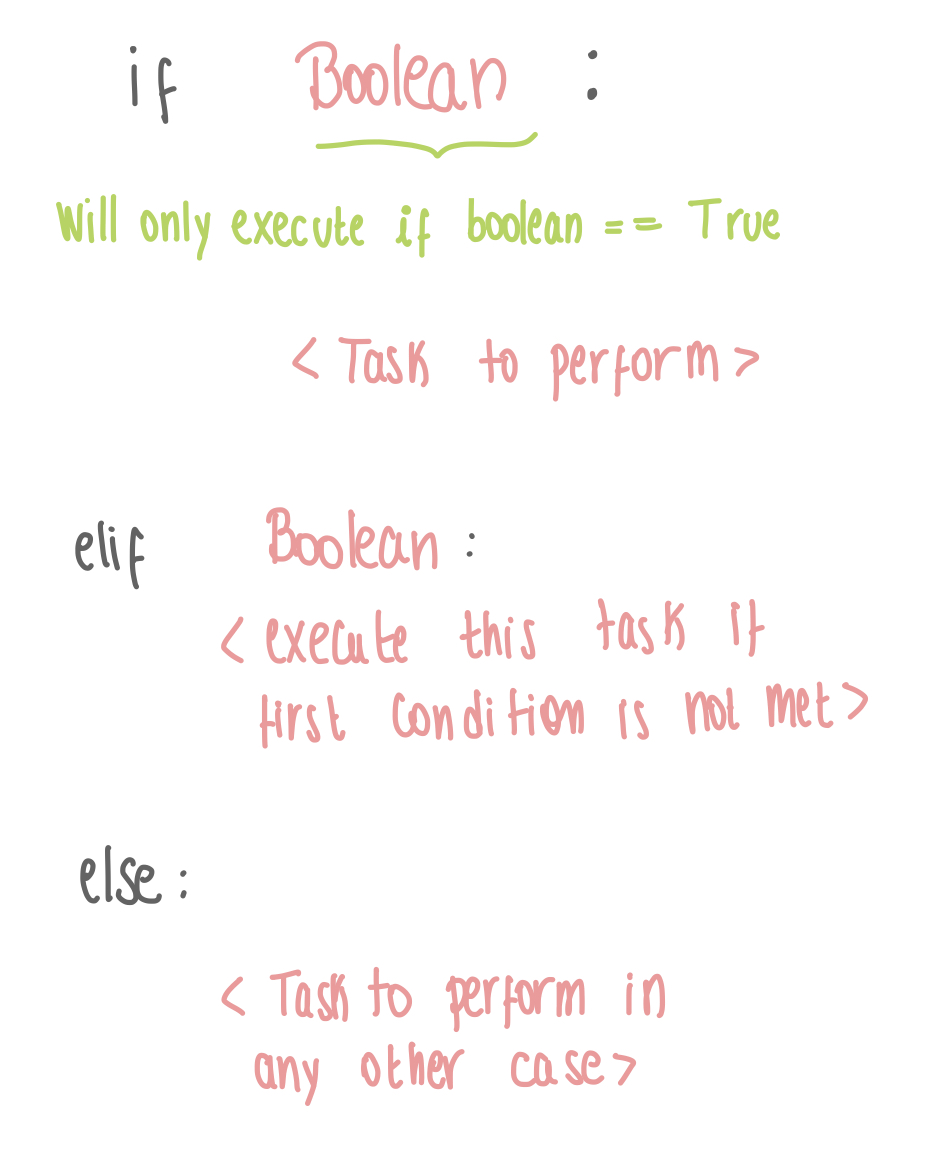 if Boolean :
Will only execute if boolean == True
< Task to perform >
elif Boolean :
< execute this task if
first condition is not met >
else :
< Task to perform in
any other case >